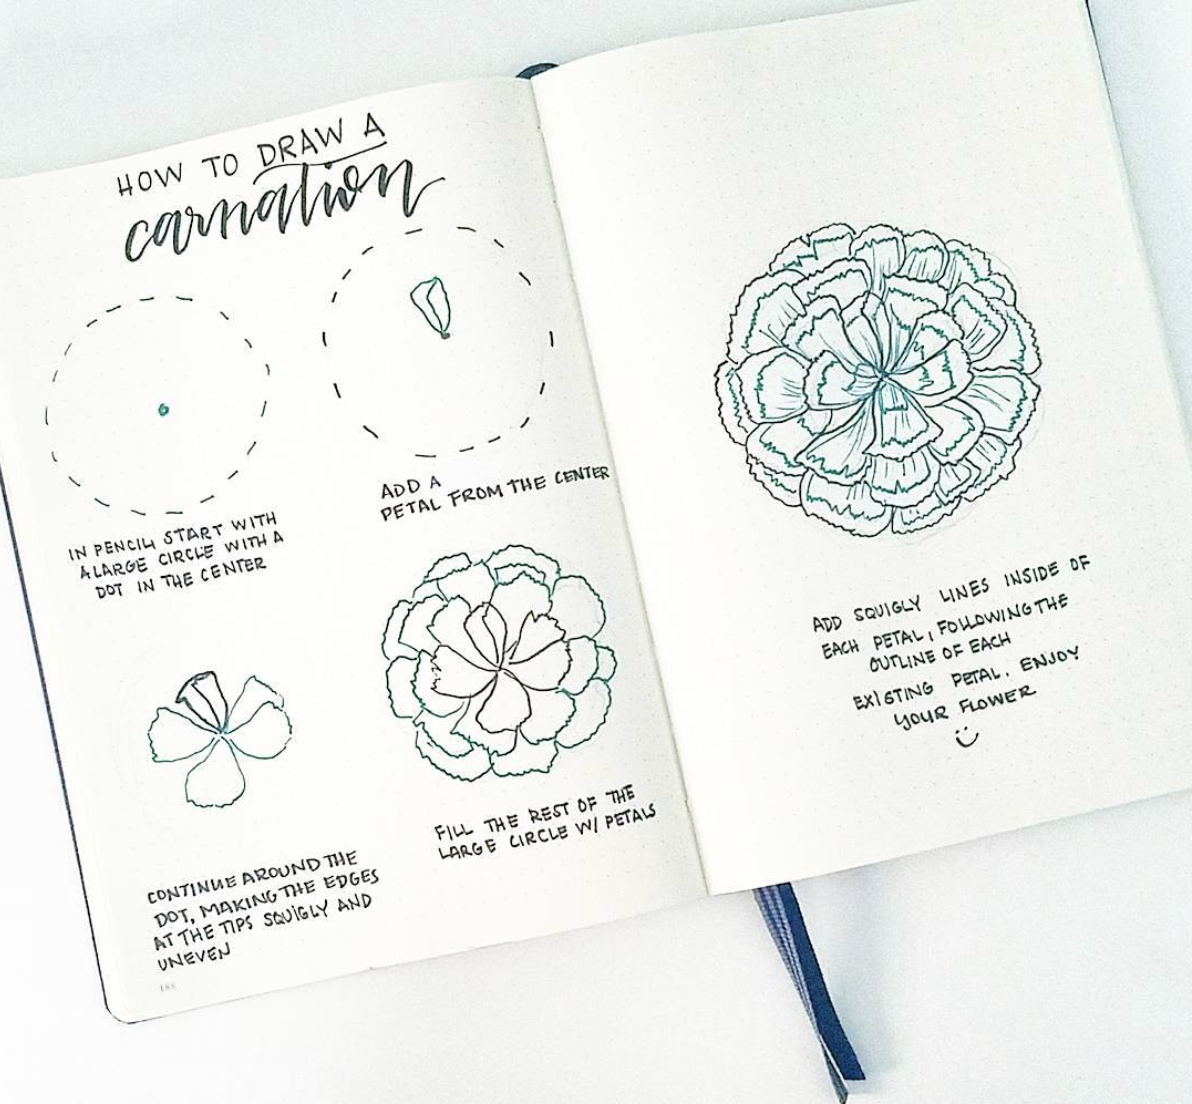 HOW TO DRAW A
carnation
IN PENCIL, START WITH
A LARGE CIRCLE WITH A
DOT IN THE CENTER
ADD A
PETAL FROM THE CENTER
CONTINUE AROUND THE
DOT, MAKING THE EDGES
AT THE TIPS SQUIGLY AND
UNEVEN
FILL THE REST OF THE
LARGE CIRCLE W/ PETALS
188
ADD SQUIGLY LINES INSIDE OF
EACH PETAL, FOLLOWING THE
OUTLINE OF EACH
EXISTING PETAL. ENJOY
YOUR FLOWER